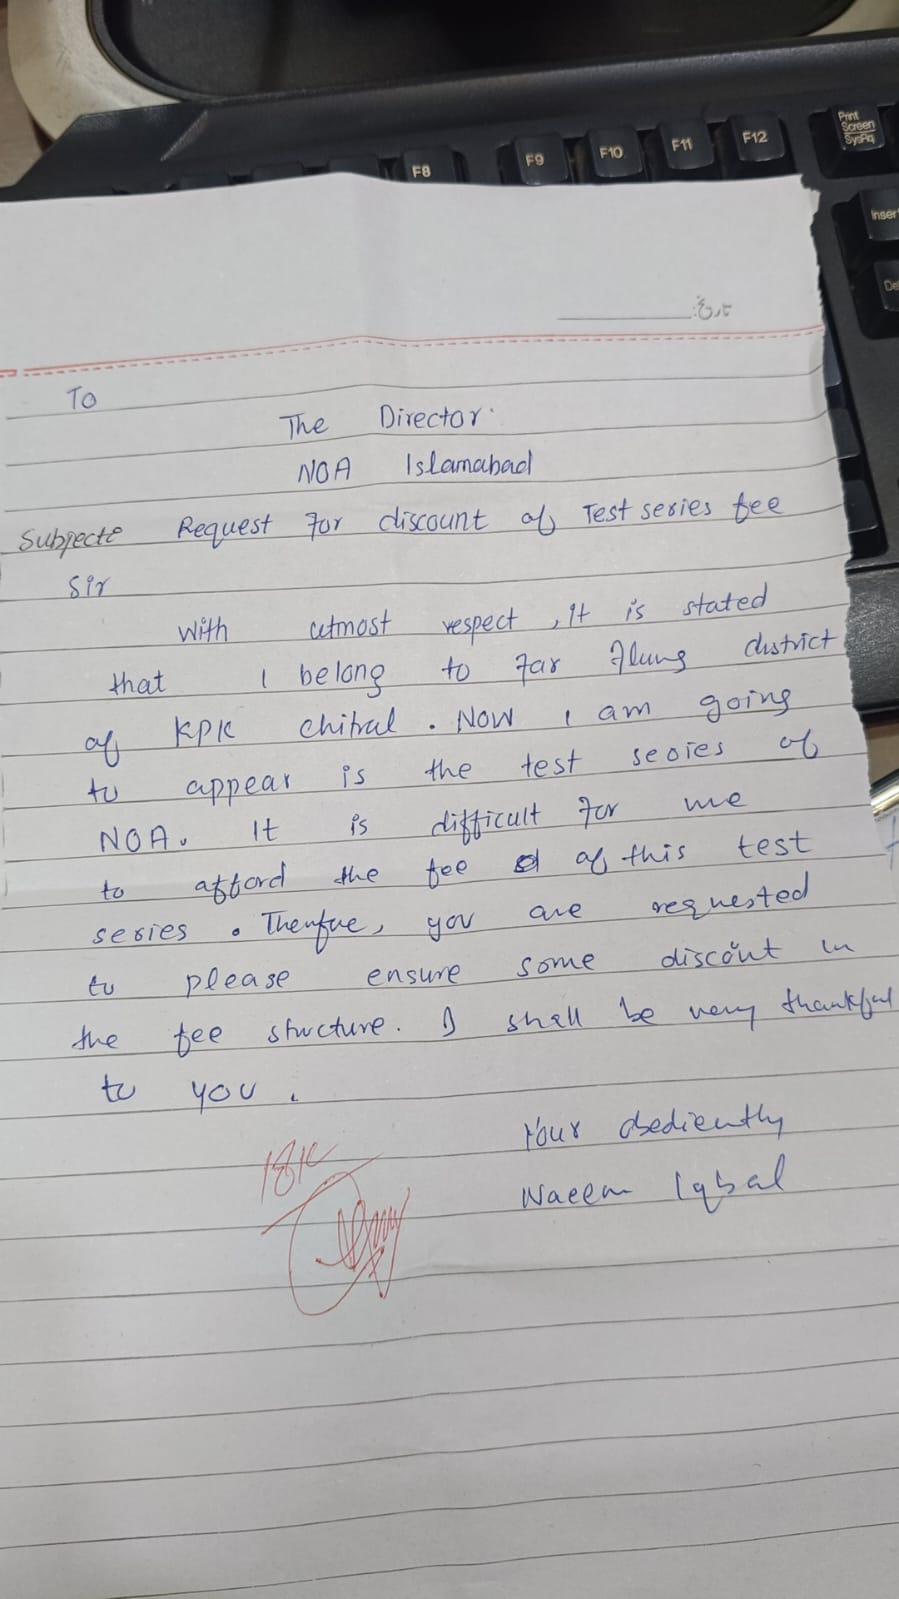 F8 F9 F10 F11 F12 Print Screen SysRq
Inser
De
تاریخ:
To
The Director
NOA Islamabad
Subject: Request For discount of Test series fee
Sir
With utmost respect, it is stated
that I belong to far flung district
of KPK chitral. Now I am going
to appear is the test series of
NOA. It is difficult for me
to afford the fee of this test
series. Therefore, you are requested
to please ensure some discount in
the fee structure. I shall be very thankful
to you.
Your obediently
Naeem Iqbal
18k